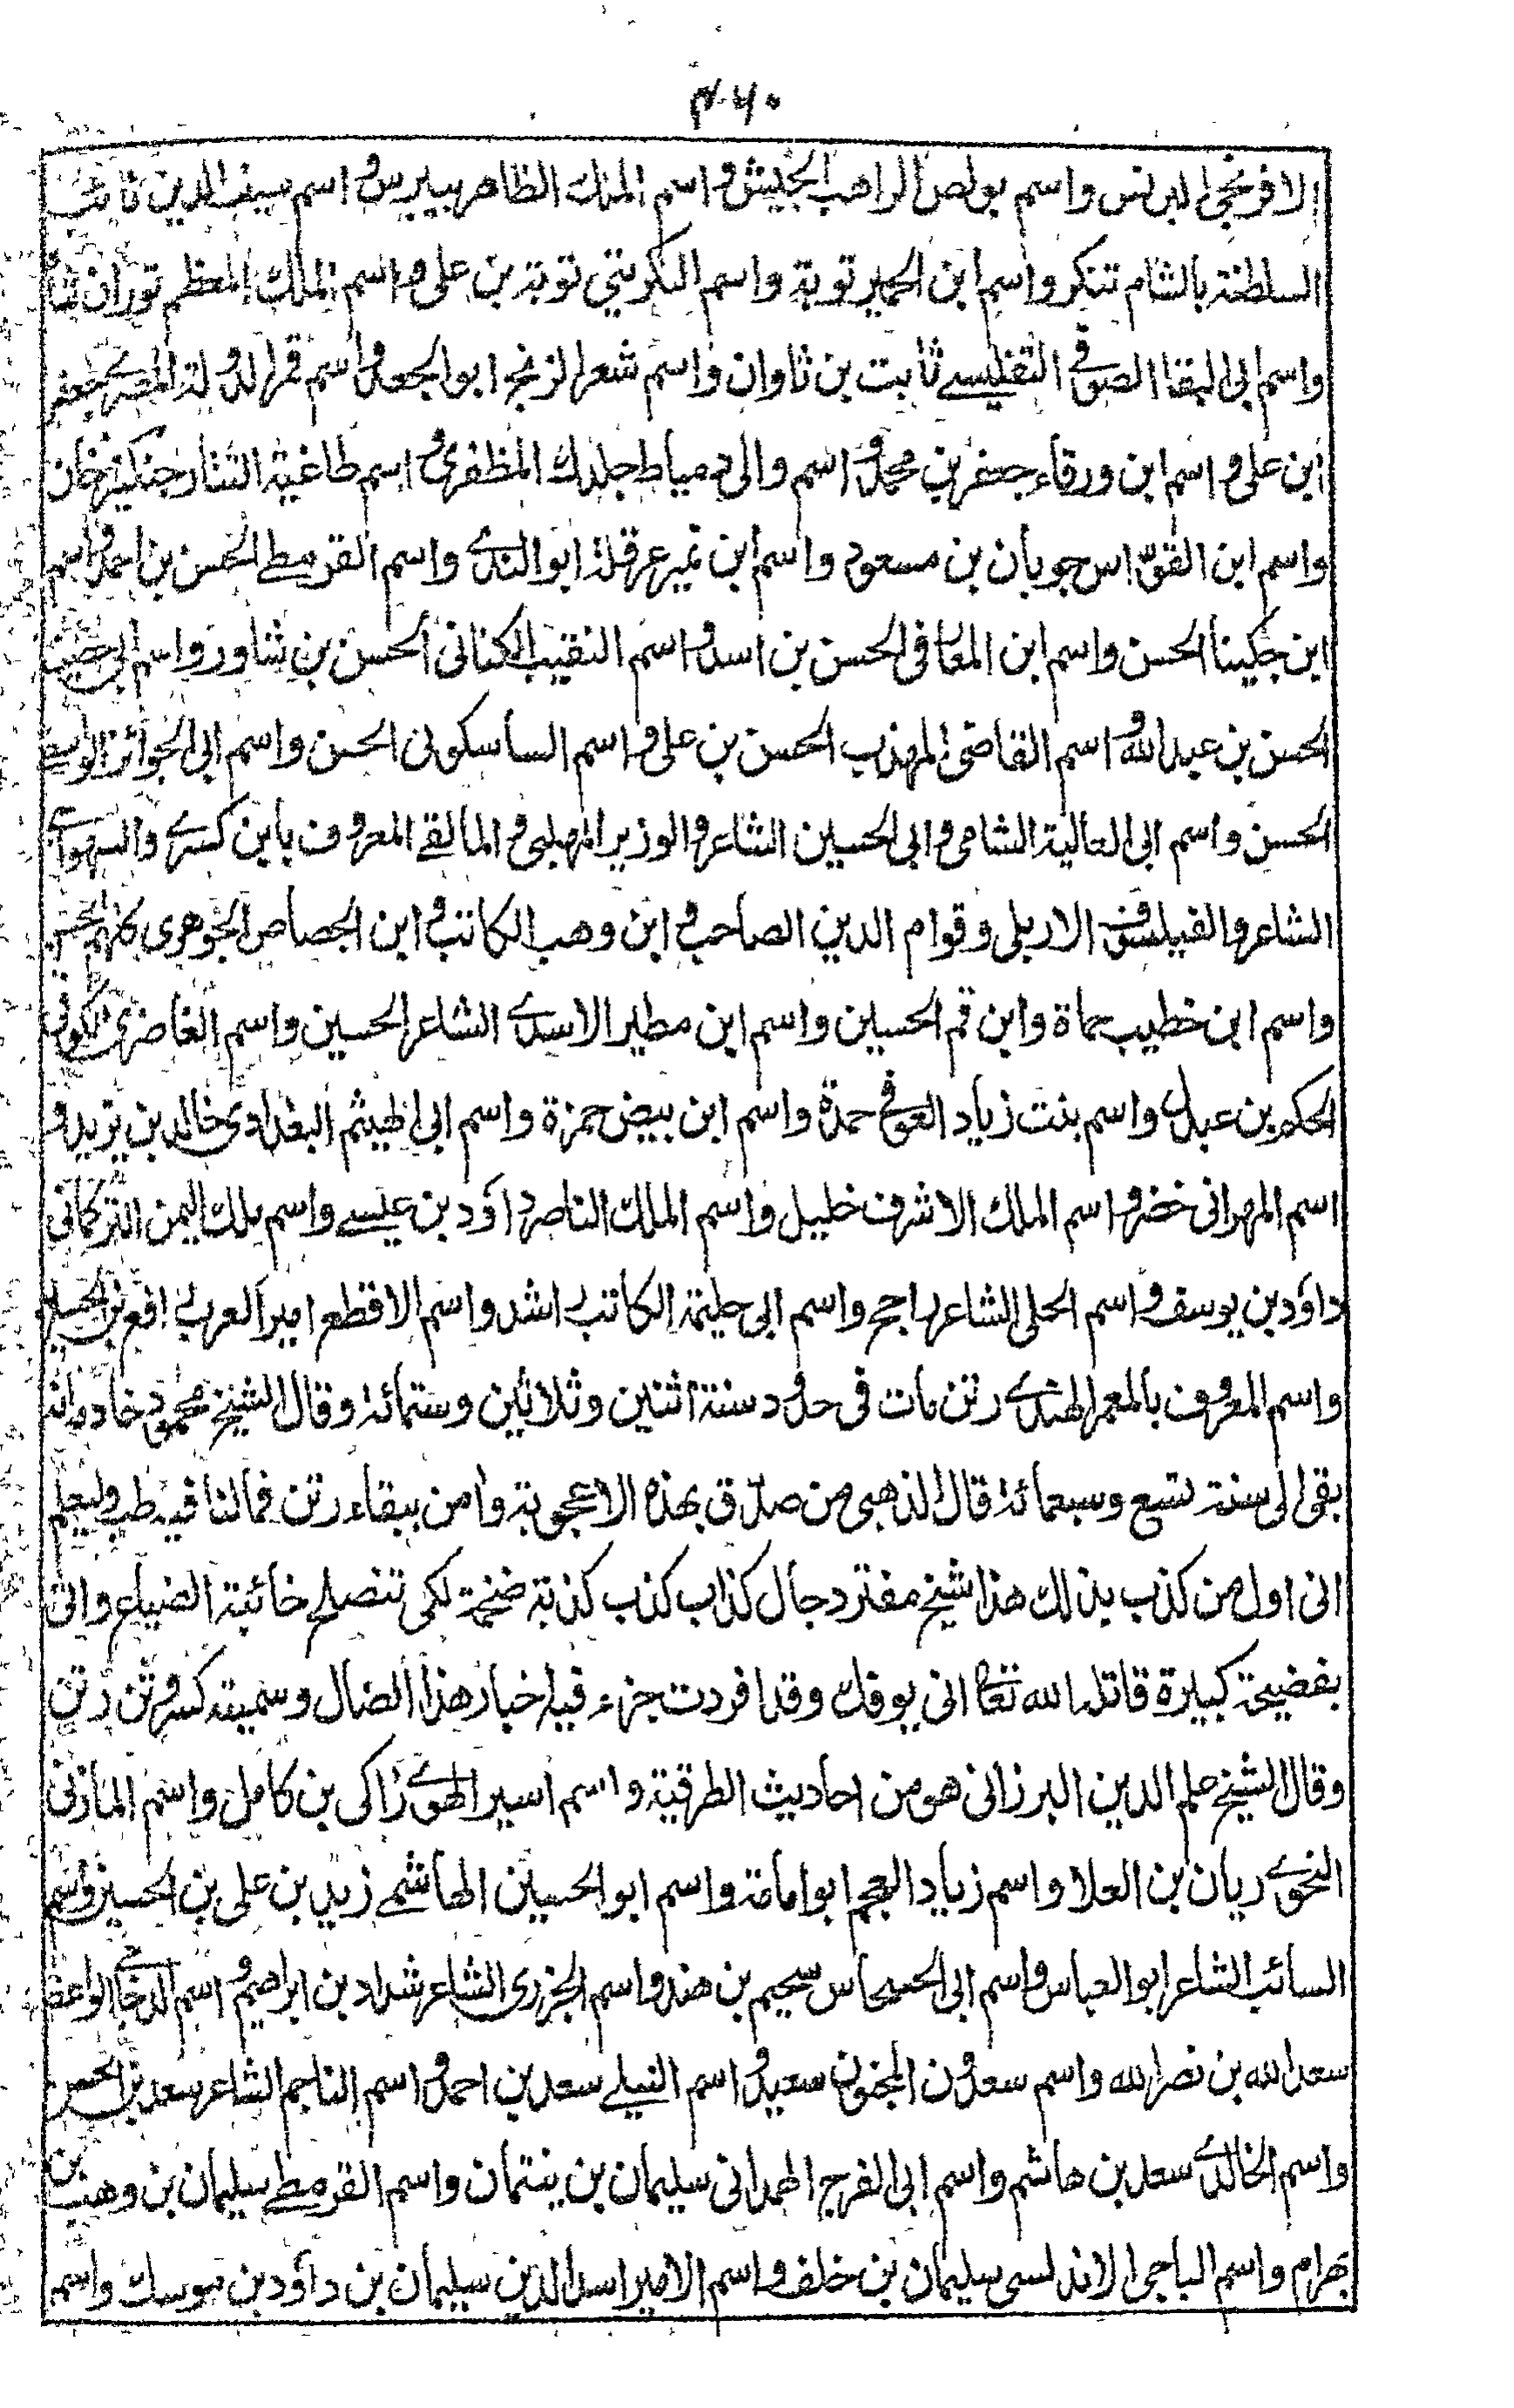 ۴۶۰
الافرنجى البرنس واسم بولص الراهب الجيش واسم الملك الظاهر بيبرس واسم سيف الدين نائب
السلطنة بالشام تنكز واسم ابن الحمير توبة واسم التكريتي توبة بن على واسم الملك المعظم توران شا
واسم ابى البقا الصوفى التفليسے ثابت بن تاوان واسم شعر الزنجہ ابو الجعد واسم قمر الدولة المصرے جعفر
ابن على واسم ابن ورقاء جعفر بن محمد واسم والى دمياط جلدك المظفرى واسم طاغية التتار جنكيز خان
واسم ابن القوّاس جوبان بن مسعود واسم ابن نمير عرقلة ابو الندے واسم القرمطے الحسن بن احمد واسم
ابن جكينا الحسن واسم ابن المعافى الحسن بن اسد واسم النقيب الكنانى الحسن بن شاور واسم ابى
الحسن بن عبد الله واسم القاضى المهذب الحسن بن على واسم الساسكونى الحسن واسم ابى الجوائز الواسطے
الحسن واسم ابى العالية الشامى وابى الحسين الشاعر والوزير المهلبى والمالقے المعروف بابن كسرے والسهواجے
الشاعر والفيلسوف الاربلى وقوام الدين الصاحب وابن وهب الكاتب وابن الجصاص الجوهرى كلهم الحسن
واسم ابن خطيب حماة وابن قم الحسين واسم ابن مطير الاسدے الشاعر الحسين واسم الغاضرى الكوفى
الحكم بن عبدل واسم بنت زياد العوفى حمدة واسم ابن بيض حمزة واسم ابى الهيثم البغدادى خالد بن يزيد و
اسم المهرانى خضر واسم الملك الاشرف خليل واسم الملك الناصر داؤد بن عيسے واسم ملك اليمن التركمانى
داؤد بن يوسف واسم الحلى الشاعر راجح واسم ابى حليمة الكاتب راشد واسم الاقطع امير العرب رافع بن الحسين
واسم المعروف بالمعمر الهندے رتن مات فى حدود سنة اثنين وثلاثين وستمائة وقال الشيخ محمود خادم انه
بقى الى سنة تسع وسبعمائة قال الذهبى من صدّق بهذه الاعجوبة وامن ببقاء رتن فمالنا فيه طب وليعلم
انى اول من كذب بذالك هذا شيخ مفتر دجال كذاب كذب كذبة ضخمة لكى تنصلح خائبة الضياع واتى
بفضيحة كبيرة قاتله الله تعا انى يوفك وقد افردت جزء فيه اخبار هذا الضال وسميته كسر وثن رتن
وقال الشيخ علم الدين البرزانى هو من احاديث الطرقية واسم اسير الهوے زاكى بن كامل واسم المازنى
النحوے ريان بن العلا واسم زياد العجم ابو امامة واسم ابو الحسين الهاشمے زيد بن على بن الحسين واسم
السائب الشاعر ابو العباس واسم ابى الحسحاس سحيم بن هند واسم الجزرى الشاعر شداد بن ابراهيم واسم الدجاجے الواعظ
سعد الله بن نصر الله واسم سعدون المجنون سعيد واسم النيلے سعد بن احمد واسم الناجم الشاعر سعد بن الحسن
واسم الخالدے سعد بن هاشم واسم ابى الفرج الهمدانى سليمان بن بنتمان واسم القرمطے سليمان بن وهب بن
بهرام واسم الباجى الاندلسى سليمان بن خلف واسم الامير اسد الدين سليمان بن داؤد بن موسك واسم